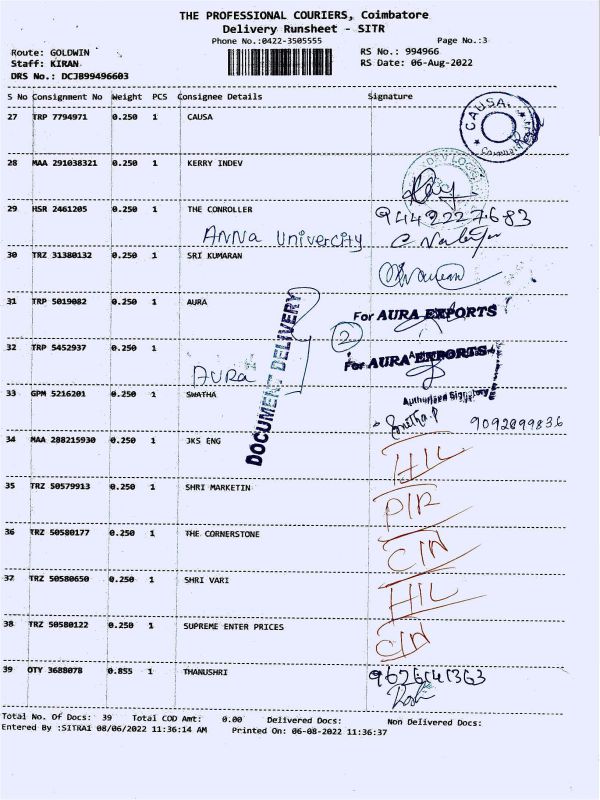 THE PROFESSIONAL COURIERS, Coimbatore
Delivery Runsheet - SITR
Phone No.:0422-3505555 Page No.:3
Route: GOLDWIN RS No.: 994966
Staff: KIRAN RS Date: 06-Aug-2022
DRS No.: DCJB99496603
S No Consignment No Weight PCS Consignee Details Signature
27 TRP 7794971 0.250 1 CAUSA
CAUSA
28 MAA 291038321 0.250 1 KERRY INDEV
29 HSR 2461205 0.250 1 THE CONROLLER
9442227683
ANNA UniverCity
30 TRZ 31380132 0.250 1 SRI KUMARAN
31 TRP 5019082 0.250 1 AURA
For AURA EXPORTS
DOCUMENT DELIVERY
2
32 TRP 5452937 0.250 1
For AURA EXPORTS
AURA
33 GPM 5216201 0.250 1 SWATHA
Authorised Signatory
Swetha.P 9092099836
34 MAA 288215930 0.250 1 JKS ENG
HIL
35 TRZ 50579913 0.250 1 SHRI MARKETIN
PIR
36 TRZ 50580177 0.250 1 THE CORNERSTONE
CIN
37 TRZ 50580650 0.250 1 SHRI VARI
HIL
38 TRZ 50580122 0.250 1 SUPREME ENTER PRICES
CIN
39 OTY 3688078 0.855 1 THANUSHRI
Total No. Of Docs: 39 Total COD Amt: 0.00 Delivered Docs: Non Delivered Docs:
Entered By :SITRA1 08/06/2022 11:36:14 AM Printed On: 06-08-2022 11:36:37